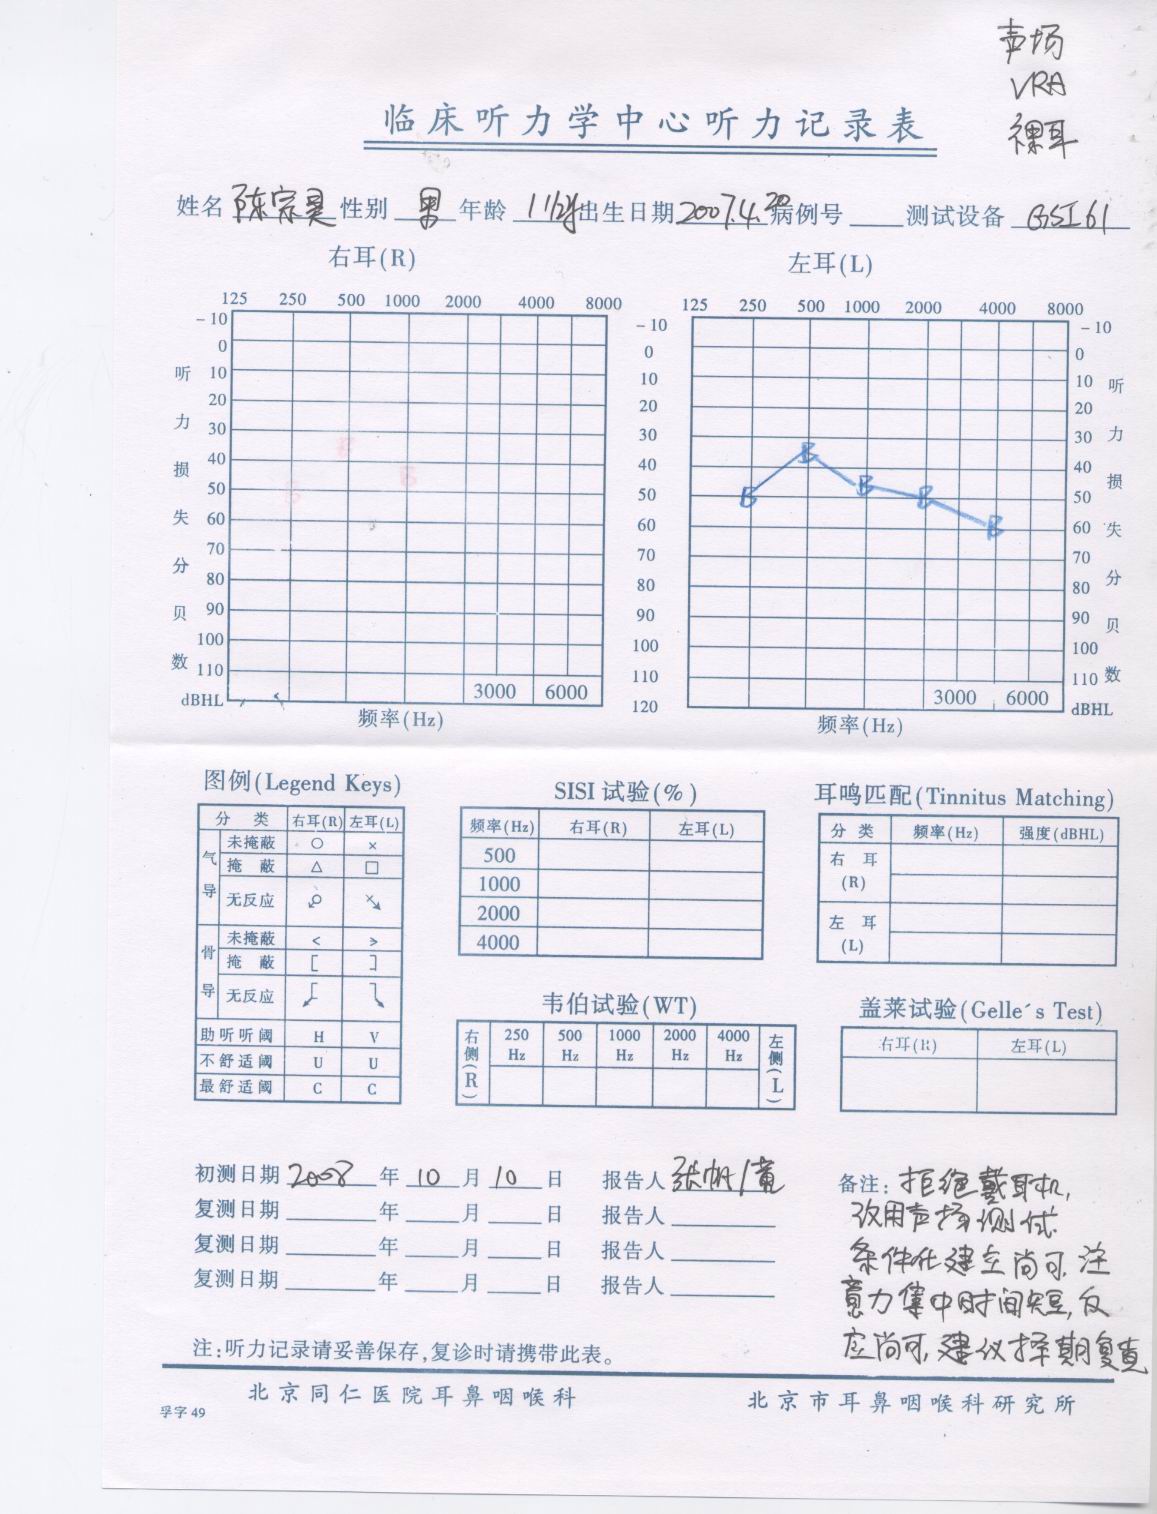 声场
VRA
裸耳
临床听力学中心听力记录表
姓名 陈宗昊 性别 男 年龄 1 1/2岁 出生日期 2007.4.20 病例号 测试设备 GSI 61
右耳(R)
左耳(L)
125 250 500 1000 2000 4000 8000
125 250 500 1000 2000 4000 8000
-10 -10 -10
0 0 0
10 10 10
20 20 20
30 30 30
40 40 40
50 50 50
60 60 60
70 70 70
80 80 80
90 90 90
100 100 100
110 110 110
dBHL 120 dBHL
听力损失分贝数
听力损失分贝数
B B B
B B B B B
3000 6000
3000 6000
频率(Hz)
频率(Hz)
图例(Legend Keys)
分 类 右耳(R) 左耳(L)
气导
未掩蔽 ○ ×
掩 蔽 △ □
无反应
骨导
未掩蔽 < >
掩 蔽 [ ]
无反应
助听听阈 H V
不舒适阈 U U
最舒适阈 C C
SISI 试验(%)
频率(Hz) 右耳(R) 左耳(L)
500
1000
2000
4000
耳鸣匹配(Tinnitus Matching)
分 类 频率(Hz) 强度(dBHL)
右 耳
(R)
左 耳
(L)
韦伯试验(WT)
右侧(R) 250 Hz 500 Hz 1000 Hz 2000 Hz 4000 Hz 左侧(L)
盖莱试验(Gelle´s Test)
右耳(R) 左耳(L)
初测日期 2008 年 10 月 10 日 报告人 张帆/黄
复测日期 年 月 日 报告人
复测日期 年 月 日 报告人
复测日期 年 月 日 报告人
备注: 拒绝戴耳机,
改用声场测试.
条件化建立尚可, 注
意力集中时间短, 反
应尚可, 建议择期复查
注:听力记录请妥善保存,复诊时请携带此表。
北京同仁医院耳鼻咽喉科
北京市耳鼻咽喉科研究所
孚字 49